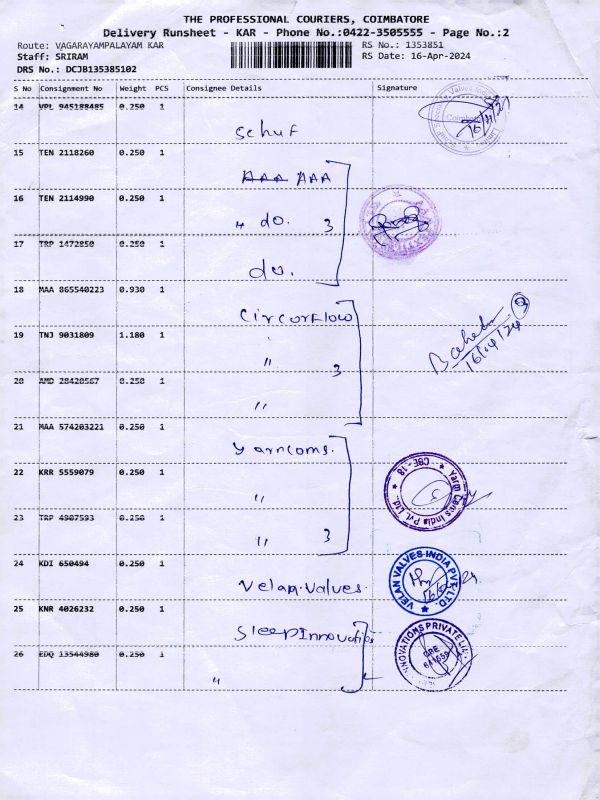 THE PROFESSIONAL COURIERS, COIMBATORE
Delivery Runsheet - KAR - Phone No.:0422-3505555 - Page No.:2
Route: VAGARAYAMPALAYAM KAR
RS No.: 1353851
Staff: SRIRAM
RS Date: 16-Apr-2024
DRS No.: DCJB135385102
S No Consignment No Weight PCS Consignee Details Signature
14 VPL 945188485 0.250 1
Schuf
15 TEN 2118260 0.250 1
AAA AAA
16 TEN 2114990 0.250 1
" do. 3
17 TRP 1472850 0.250 1
do.
18 MAA 865540223 0.930 1
Circorflow
19 TNJ 9031809 1.180 1
" 3
20 AMD 28420567 0.250 1
"
21 MAA 574203221 0.250 1
Yarncoms.
22 KRR 5559079 0.250 1
"
Yarn Coms India Pvt. Ltd. CBE - 18
23 TRP 4907593 0.250 1
" 3
24 KDI 650494 0.250 1
Velan.Valves.
VELAN VALVES INDIA PVT. LTD.
25 KNR 4026232 0.250 1
SleepInnovations
INNOVATIONS PRIVATE
26 EDQ 13544980 0.250 1
"